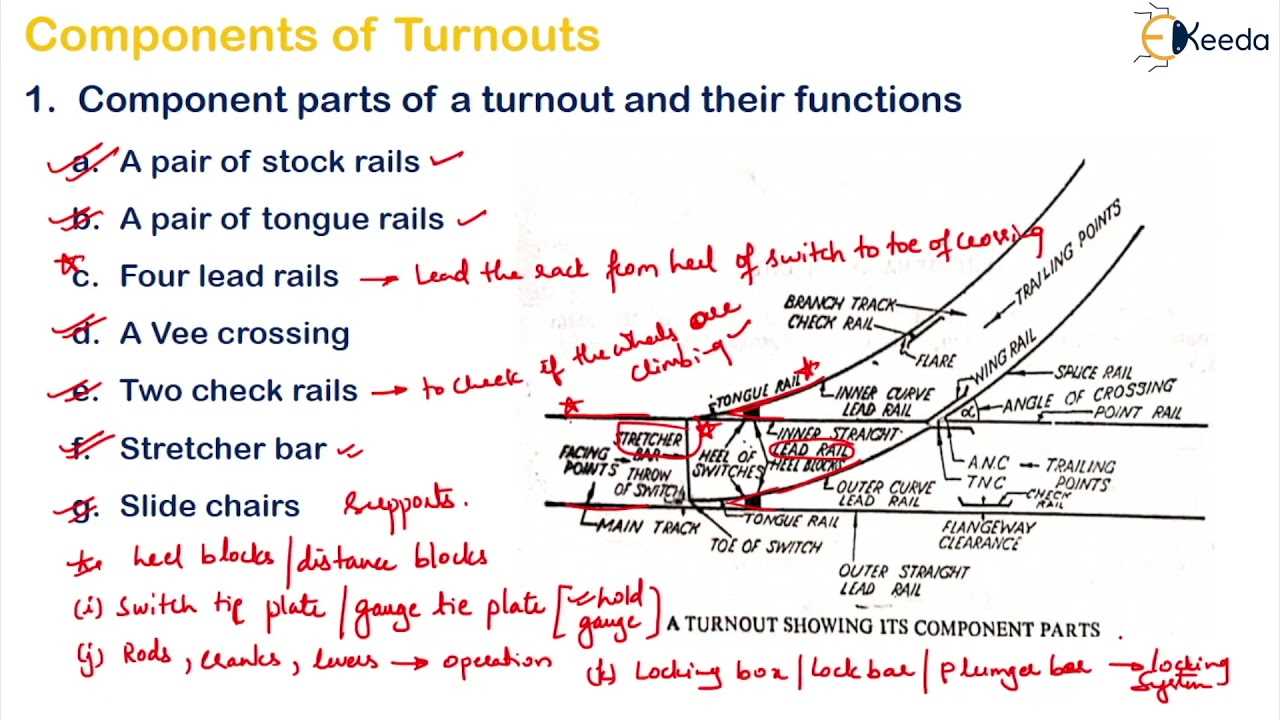 Components of Turnouts
EKeeda
1. Component parts of a turnout and their functions
a. A pair of stock rails
b. A pair of tongue rails
c. Four lead rails → Lead the rack from heel of switch to toe of crossing
d. A Vee crossing
e. Two check rails → to check if the wheels are
climbing
f. Stretcher bar
g. Slide chairs supports.
heel blocks / distance blocks
(i) Switch tie plate / gauge tie plate [hold
gauge]
(j) Rods, cranks, levers → operation
(k) Locking box / lock bar / plunger bar → locking
system
TRAILING POINTS
BRANCH TRACK
CHECK RAIL
FLARE
WING RAIL
SPLICE RAIL
TONGUE RAIL
INNER CURVE
LEAD RAIL
α
ANGLE OF CROSSING
POINT RAIL
STRETCHER
BAR
INNER STRAIGHT
LEAD RAIL
FACING
POINTS
THROW
OF SWITCH
HEEL OF
SWITCHES
HEEL BLOCKS
OUTER CURVE
LEAD RAIL
A.N.C
TNC
TRAILING
POINTS
CHECK
RAIL
MAIN TRACK
TONGUE RAIL
TOE OF SWITCH
FLANGEWAY
CLEARANCE
OUTER STRAIGHT
LEAD RAIL
A TURNOUT SHOWING ITS COMPONENT PARTS